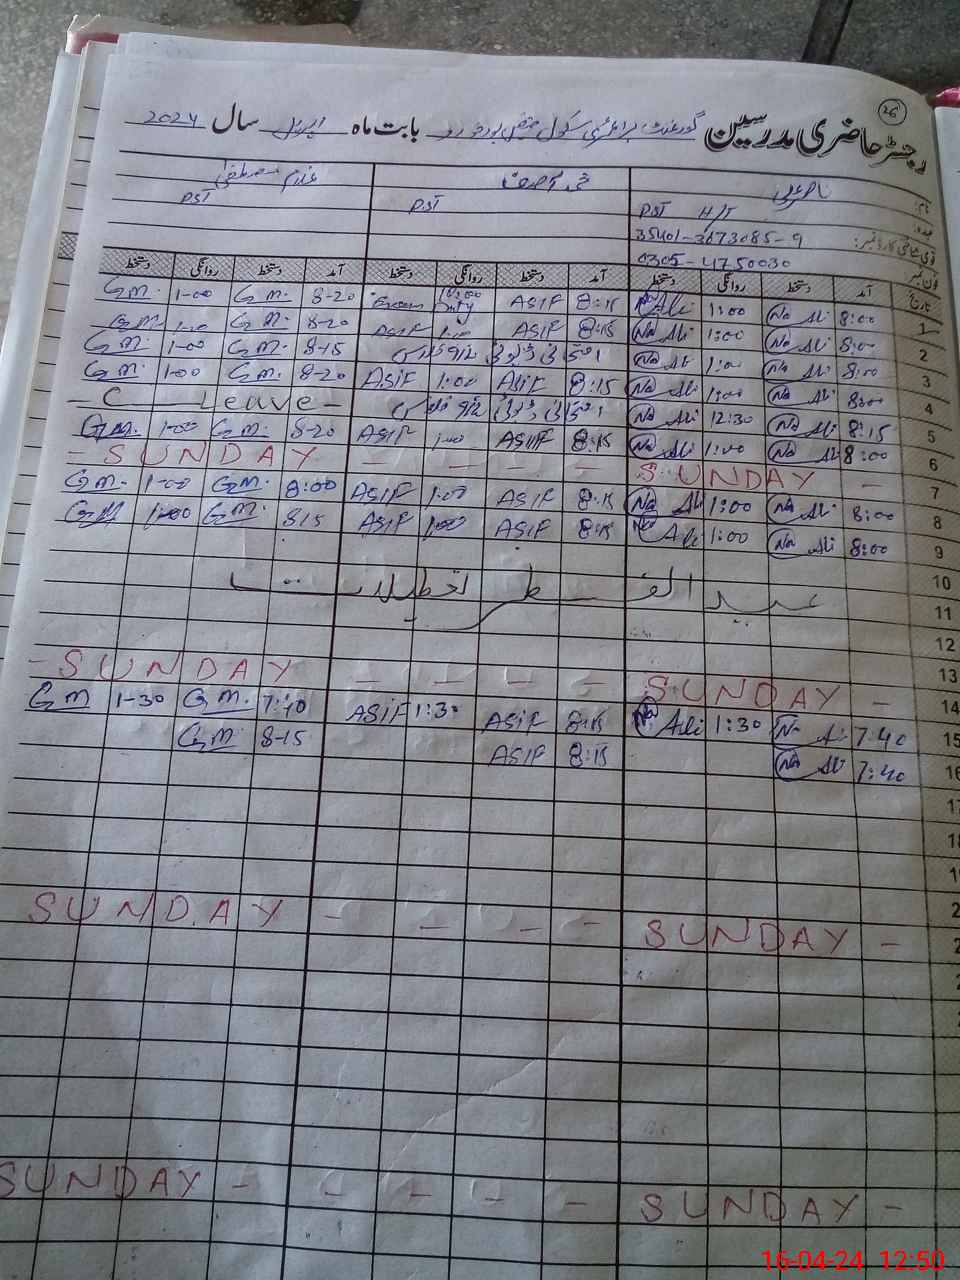 26
رجسٹر حاضری مدرسین گورنمنٹ پرائمری سکول بابت ماہ اپریل سال 2024
نام: ناصر علی محمد آصف غلام مصطفیٰ
عہدہ: PST H/T PST PST
قومی شناختی کارڈ نمبر: 35401-3673085-9
فون نمبر: 0305-4750030
تاریخ آمد دستخط روانگی دستخط آمد دستخط روانگی دستخط آمد دستخط روانگی دستخط
1 8:00 Na Ali 1:00 Na Ali 8:15 ASIF Duty 8-20 G.M. 1-00 G.M.
2 8:00 Na Ali 1:00 Na Ali 8:15 ASIF 1:00 ASIF 8-20 G.M. 1-00 G.M.
3 8:00 Na Ali 1:00 Na Ali 8-15 G.M. 1-00 G.M.
4 8:00 Na Ali 1:00 Na Ali 8:15 ASIF 1:00 ASIF 8-20 G.M. 1-00 G.M.
5 8:15 Na Ali 12:30 Na Ali - C Leave -
6 8:00 Na Ali 1:00 Na Ali 8:15 ASIF 1:00 ASIF 8-20 G.M. 1-00 G.M.
7 SUNDAY - - - - - SUNDAY -
8 8:00 Na Ali 1:00 Na Ali 8:15 ASIF 1:00 ASIF 8:00 G.M. 1-00 G.M.
9 8:00 Na Ali 1:00 Na Ali 8:15 ASIF 1:00 ASIF 8-15 G.M. 1-00 G.M.
10
11 عید الفطر تعطیلات
12
13
14 SUNDAY - - - - - SUNDAY -
15 7:40 Na Ali 1:30 Na Ali 8:15 ASIF 1:30 ASIF 7:40 G.M. 1-30 G.M.
16 7:40 Na Ali 8:15 ASIF 8-15 G.M.
17
SUNDAY - - - - - SUNDAY -
SUNDAY - - - - - SUNDAY -
16-04-24 12:50